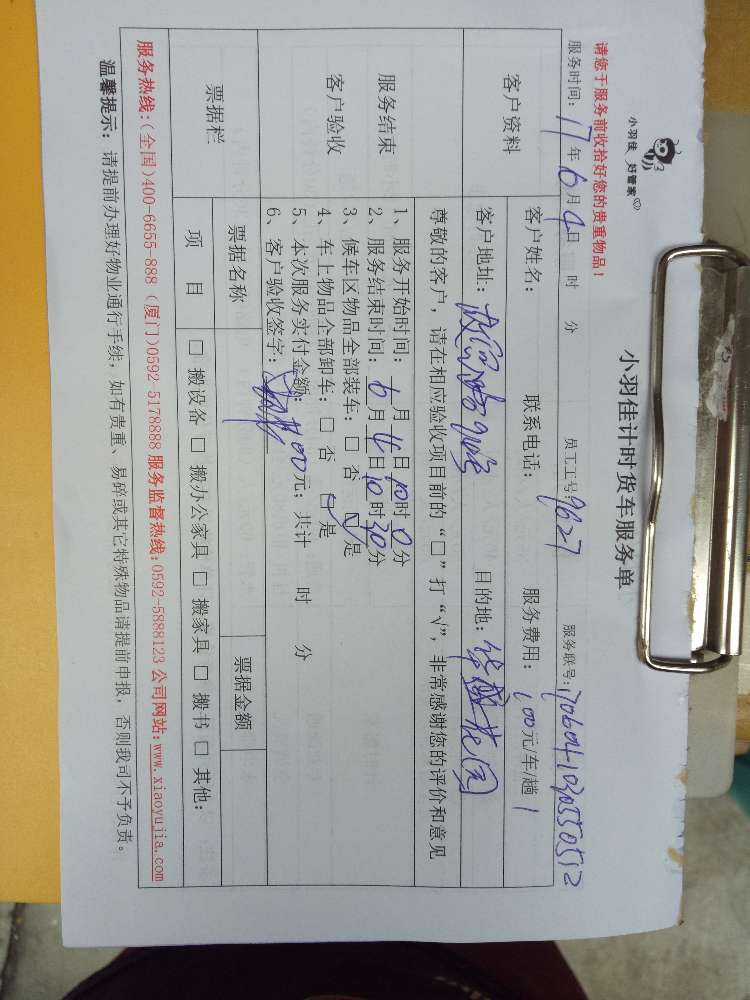 小羽佳 好管家
小羽佳计时货车服务单
请您于服务前收拾好您的贵重物品!
员工工号: 9627
服务联号: 1706041030550512
服务时间: 17年6月4日 时 分
客户资料
客户姓名: 联系电话: 服务费用: 100元/车/趟
客户地址: 目的地: 华盛花园
尊敬的客户，请在相应验收项目前的“□”打“√”，非常感谢您的评价和意见
服务结束
客户验收
1、服务开始时间: 月 日10时0分
2、服务结束时间: 6月4日10时30分
3、候车区物品全部装车: □ 否 ☑是
4、车上物品全部卸车: □ 否 ☑是
5、本次服务实付金额: 100元; 共计 时 分
6、客户验收签字:
票据栏
票据名称 票据金额
项 目 □ 搬设备 □ 搬办公家具 □ 搬家具 □ 搬书 □ 其他:
服务热线:(全国)400-6655-888 (厦门)0592-5178888 服务监督热线:0592-5888123 公司网站:www.xiaoyujia.com
温馨提示: 请提前办理好物业通行手续，如有贵重、易碎或其它特殊物品请提前申报，否则我司不予负责。